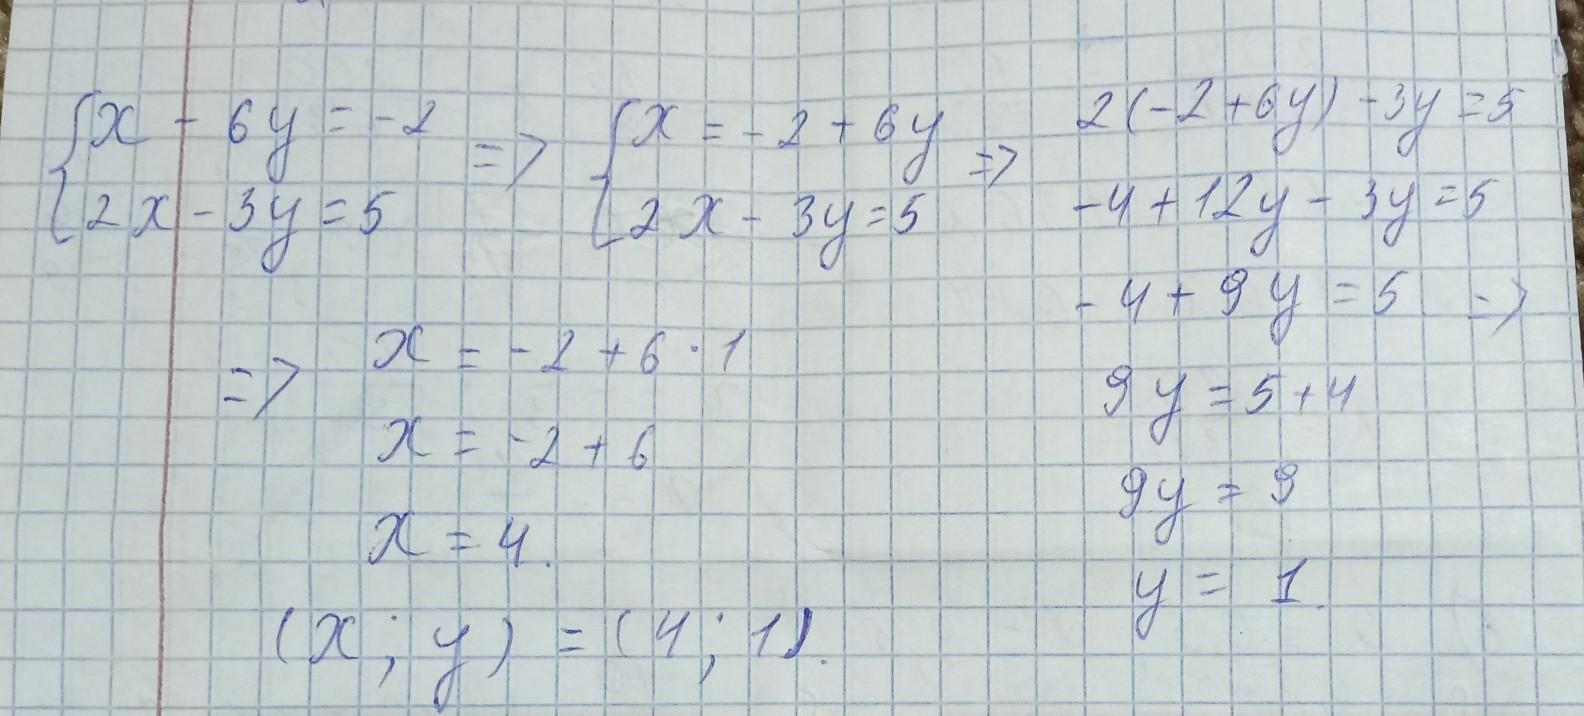 {x - 6y = -2
2x - 3y = 5
=>
{x = -2 + 6y
2x - 3y = 5
=>
2(-2+6y) - 3y = 5
-4 + 12y - 3y = 5
-4 + 9y = 5 =>
9y = 5 + 4
9y = 9
y = 1.
=>
x = -2 + 6 · 1
x = -2 + 6
x = 4.
(x ; y) = (4 ; 1).